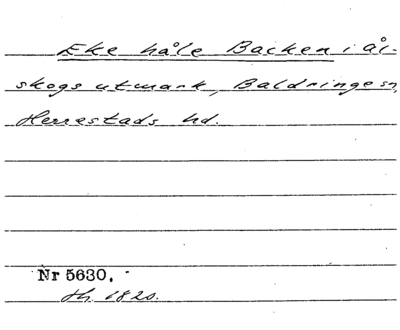 Eke håle Backen i ål-
skogs utmark, Baldringe sn,
Herrestads hd.
Nr 5630.
Th. 1820.